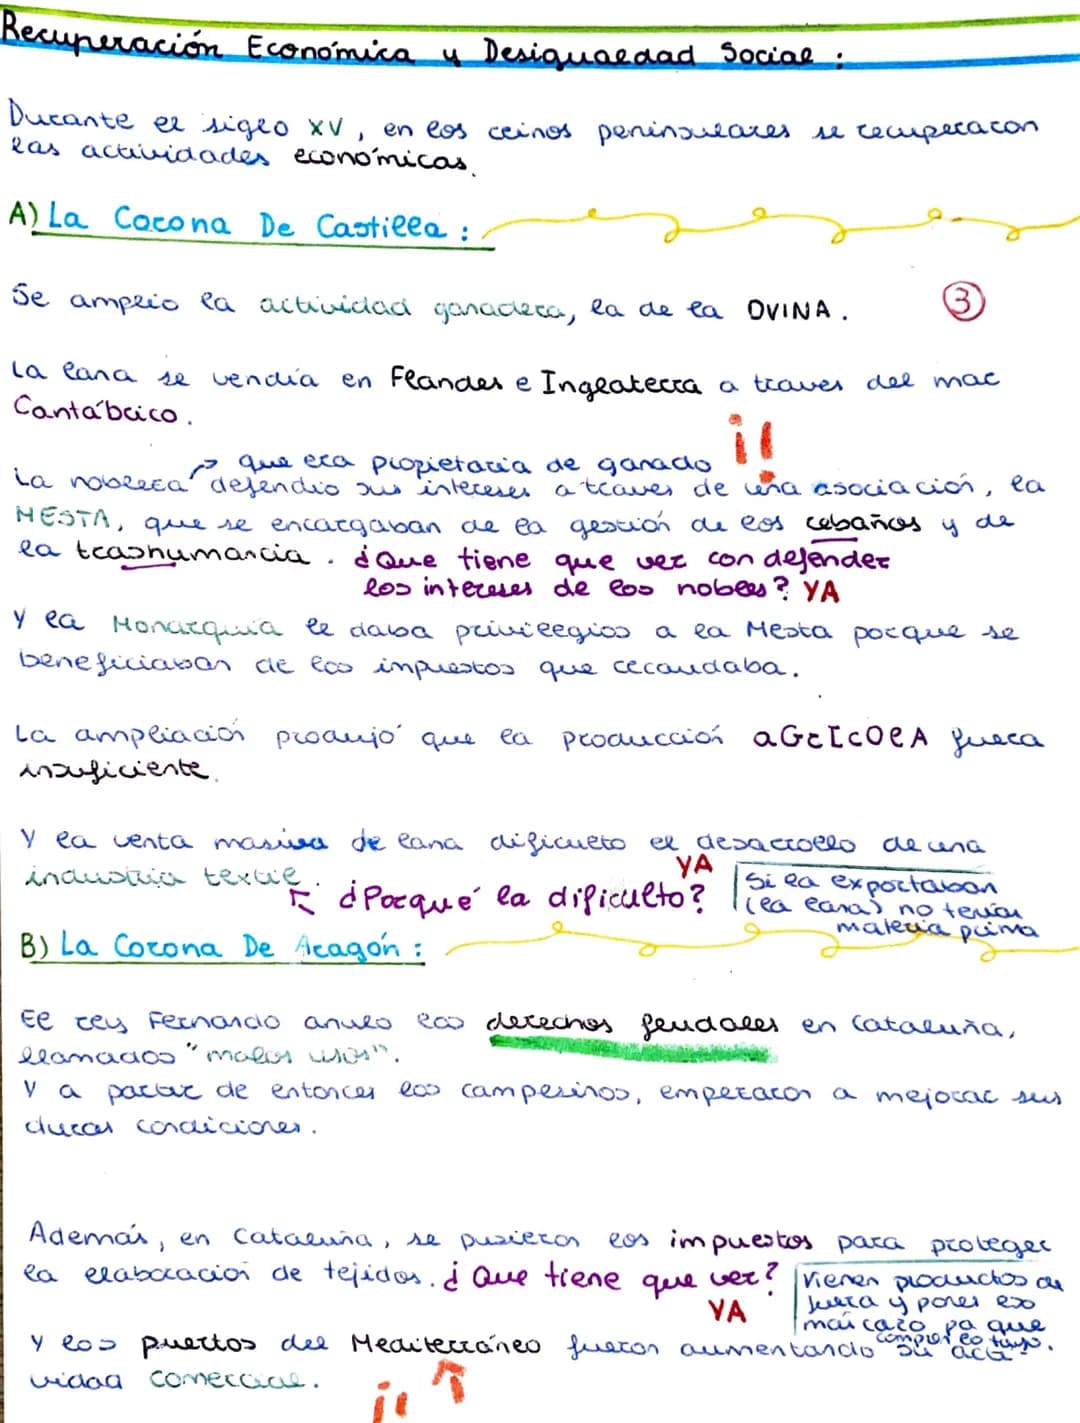 Recuperación Económica y Desigualdad Social :
Durante el siglo XV, en los reinos peninsulares se recuperaron
las actividades económicas.
A) La Corona De Castilla :
Se amplio la actividad ganadera, la de la OVINA.
3
La lana se vendía en Flandes e Inglaterra a traves del mar
Cantábrico.
¡!
→ que era propietaria de ganado
La nobleza defendio sus intereses a traves de una asociación, la
MESTA, que se encargaban de la gestión de los rebaños y de
la trashumancia. ¿Que tiene que ver con defender
los intereses de los nobles? YA
Y la Monarquia le daba privilegios a la Mesta porque se
beneficiaban de los impuestos que recaudaba.
La ampliación produjo que la producción aGrIcOlA fuera
insuficiente.
Y la venta masiva de lana dificulto el desarrollo de una
industria textil.
YA
¿Porqué la dificulto?
Si la exportaban
(la lana) no tenían
materia prima
B) La Corona De Aragón :
El rey Fernando anulo los derechos feudales en Cataluña,
llamados "malos usos".
Y a partir de entonces los campesinos, empezaron a mejorar sus
duras condiciones.
Además, en Cataluña, se pusieron los impuestos para proteger
la elaboración de tejidos. ¿Que tiene que ver?
YA
Vienen productos de
fuera y pones eso
mas caro pa que
compren lo tuyo.
Y los puertos del Mediterráneo fueron aumentando su acti-
vidad comercial.
¡!